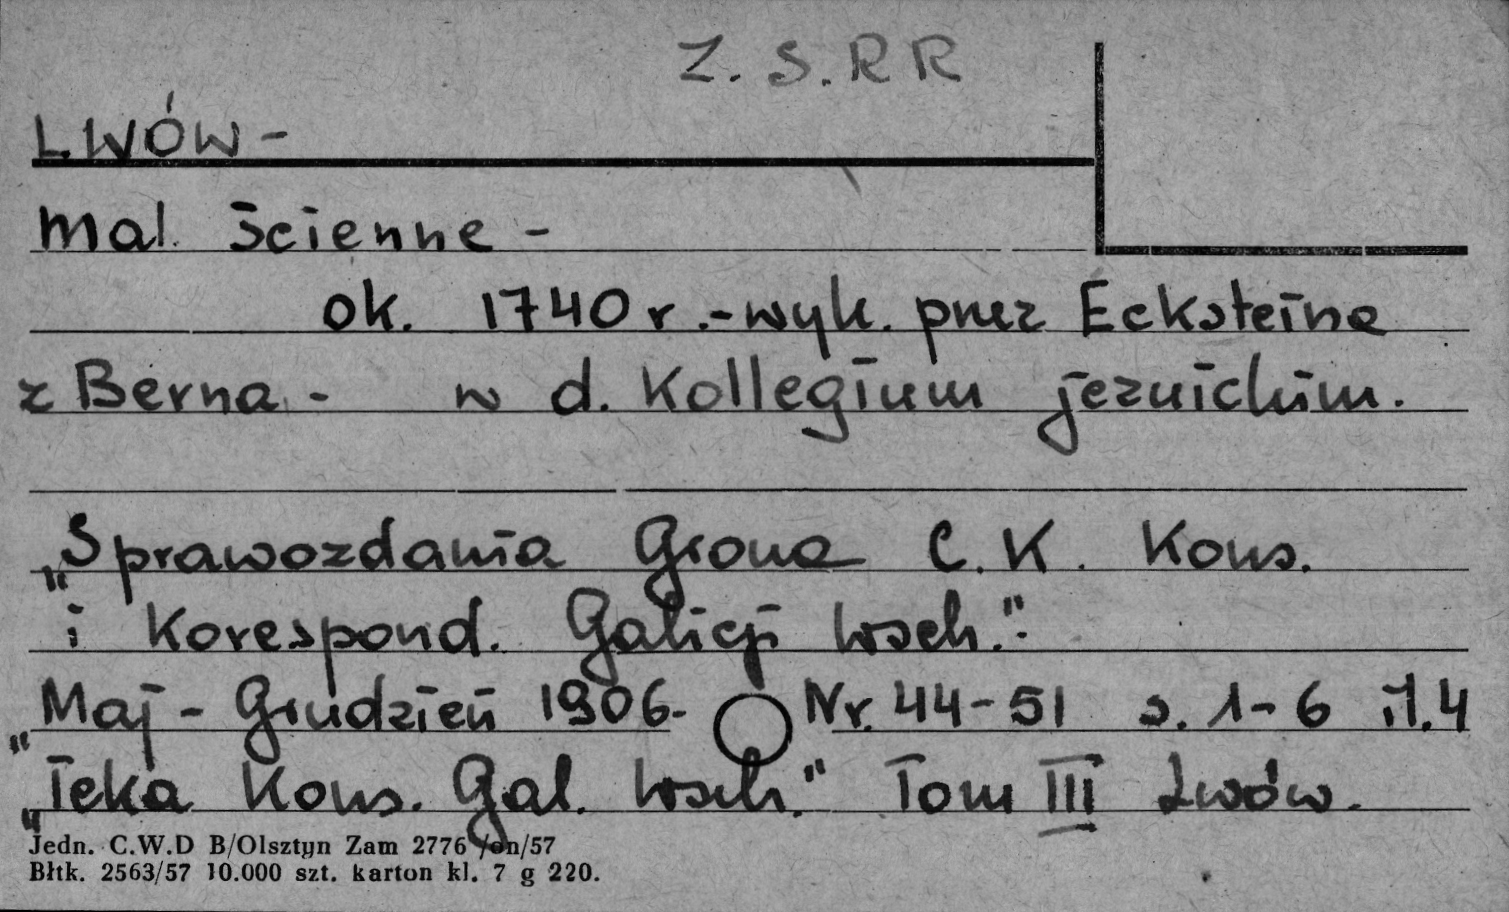 Z.S.RR
LWÓW -
Mal. ścienne -
ok. 1740 r. - wyk. przez Ecksteina
z Berna - w d. Kollegium jezuickim.
„Sprawozdania Grona C.K. Kons.
i Korespond. Galicji Wsch.":
Maj - Grudzień 1906 - Nr. 44-51 s. 1-6 il. 4
"
„Teka Kons. Gal. Wsch." Tom III Lwów.
Jedn. C.W.D B/Olsztyn Zam 2776/on/57
Błtk. 2563/57 10.000 szt. karton kl. 7 g 220.